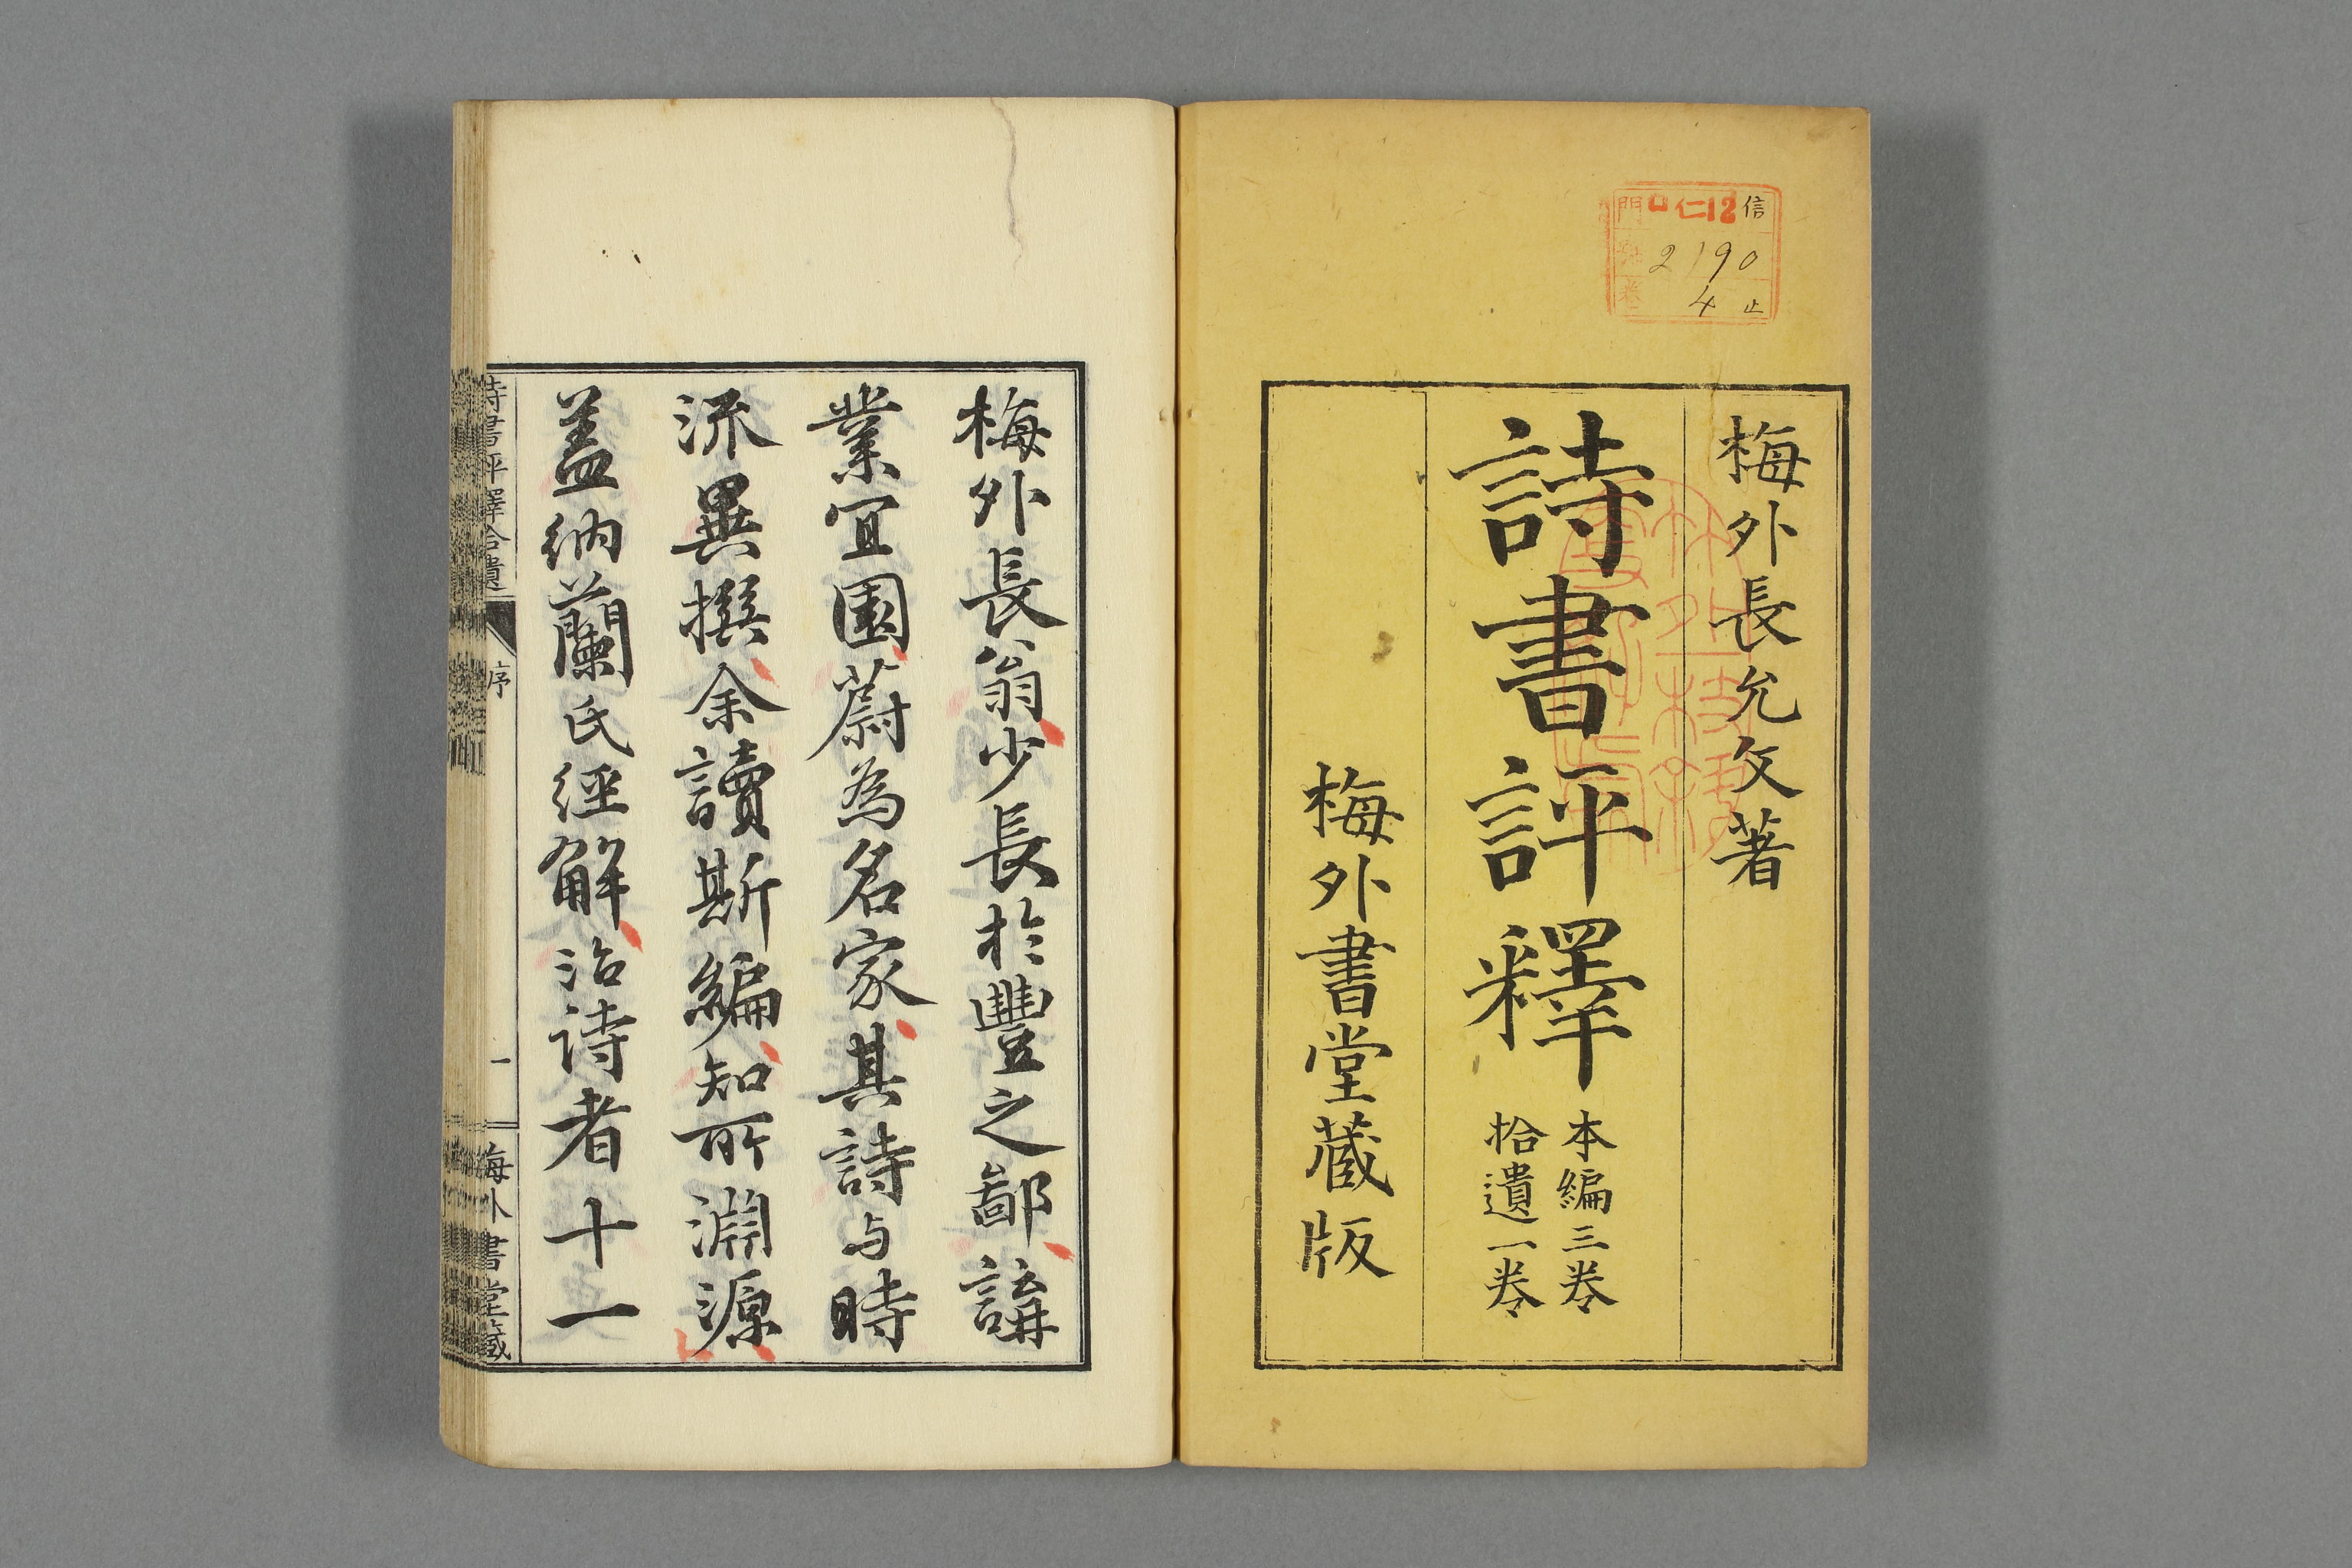 門 口仁12 信
號 2190
卷 4 止
梅外長允文著
詩書評釋
本編三卷
拾遺一卷
梅外書堂蔵版
梅外長翁少長於豐之鄙講
業宜園蔚為名家其詩与時
流異撰余讀斯編知所淵源
盖納蘭氏經解治詩者十一
詩書評釋拾遺 序 一 梅外書堂藏